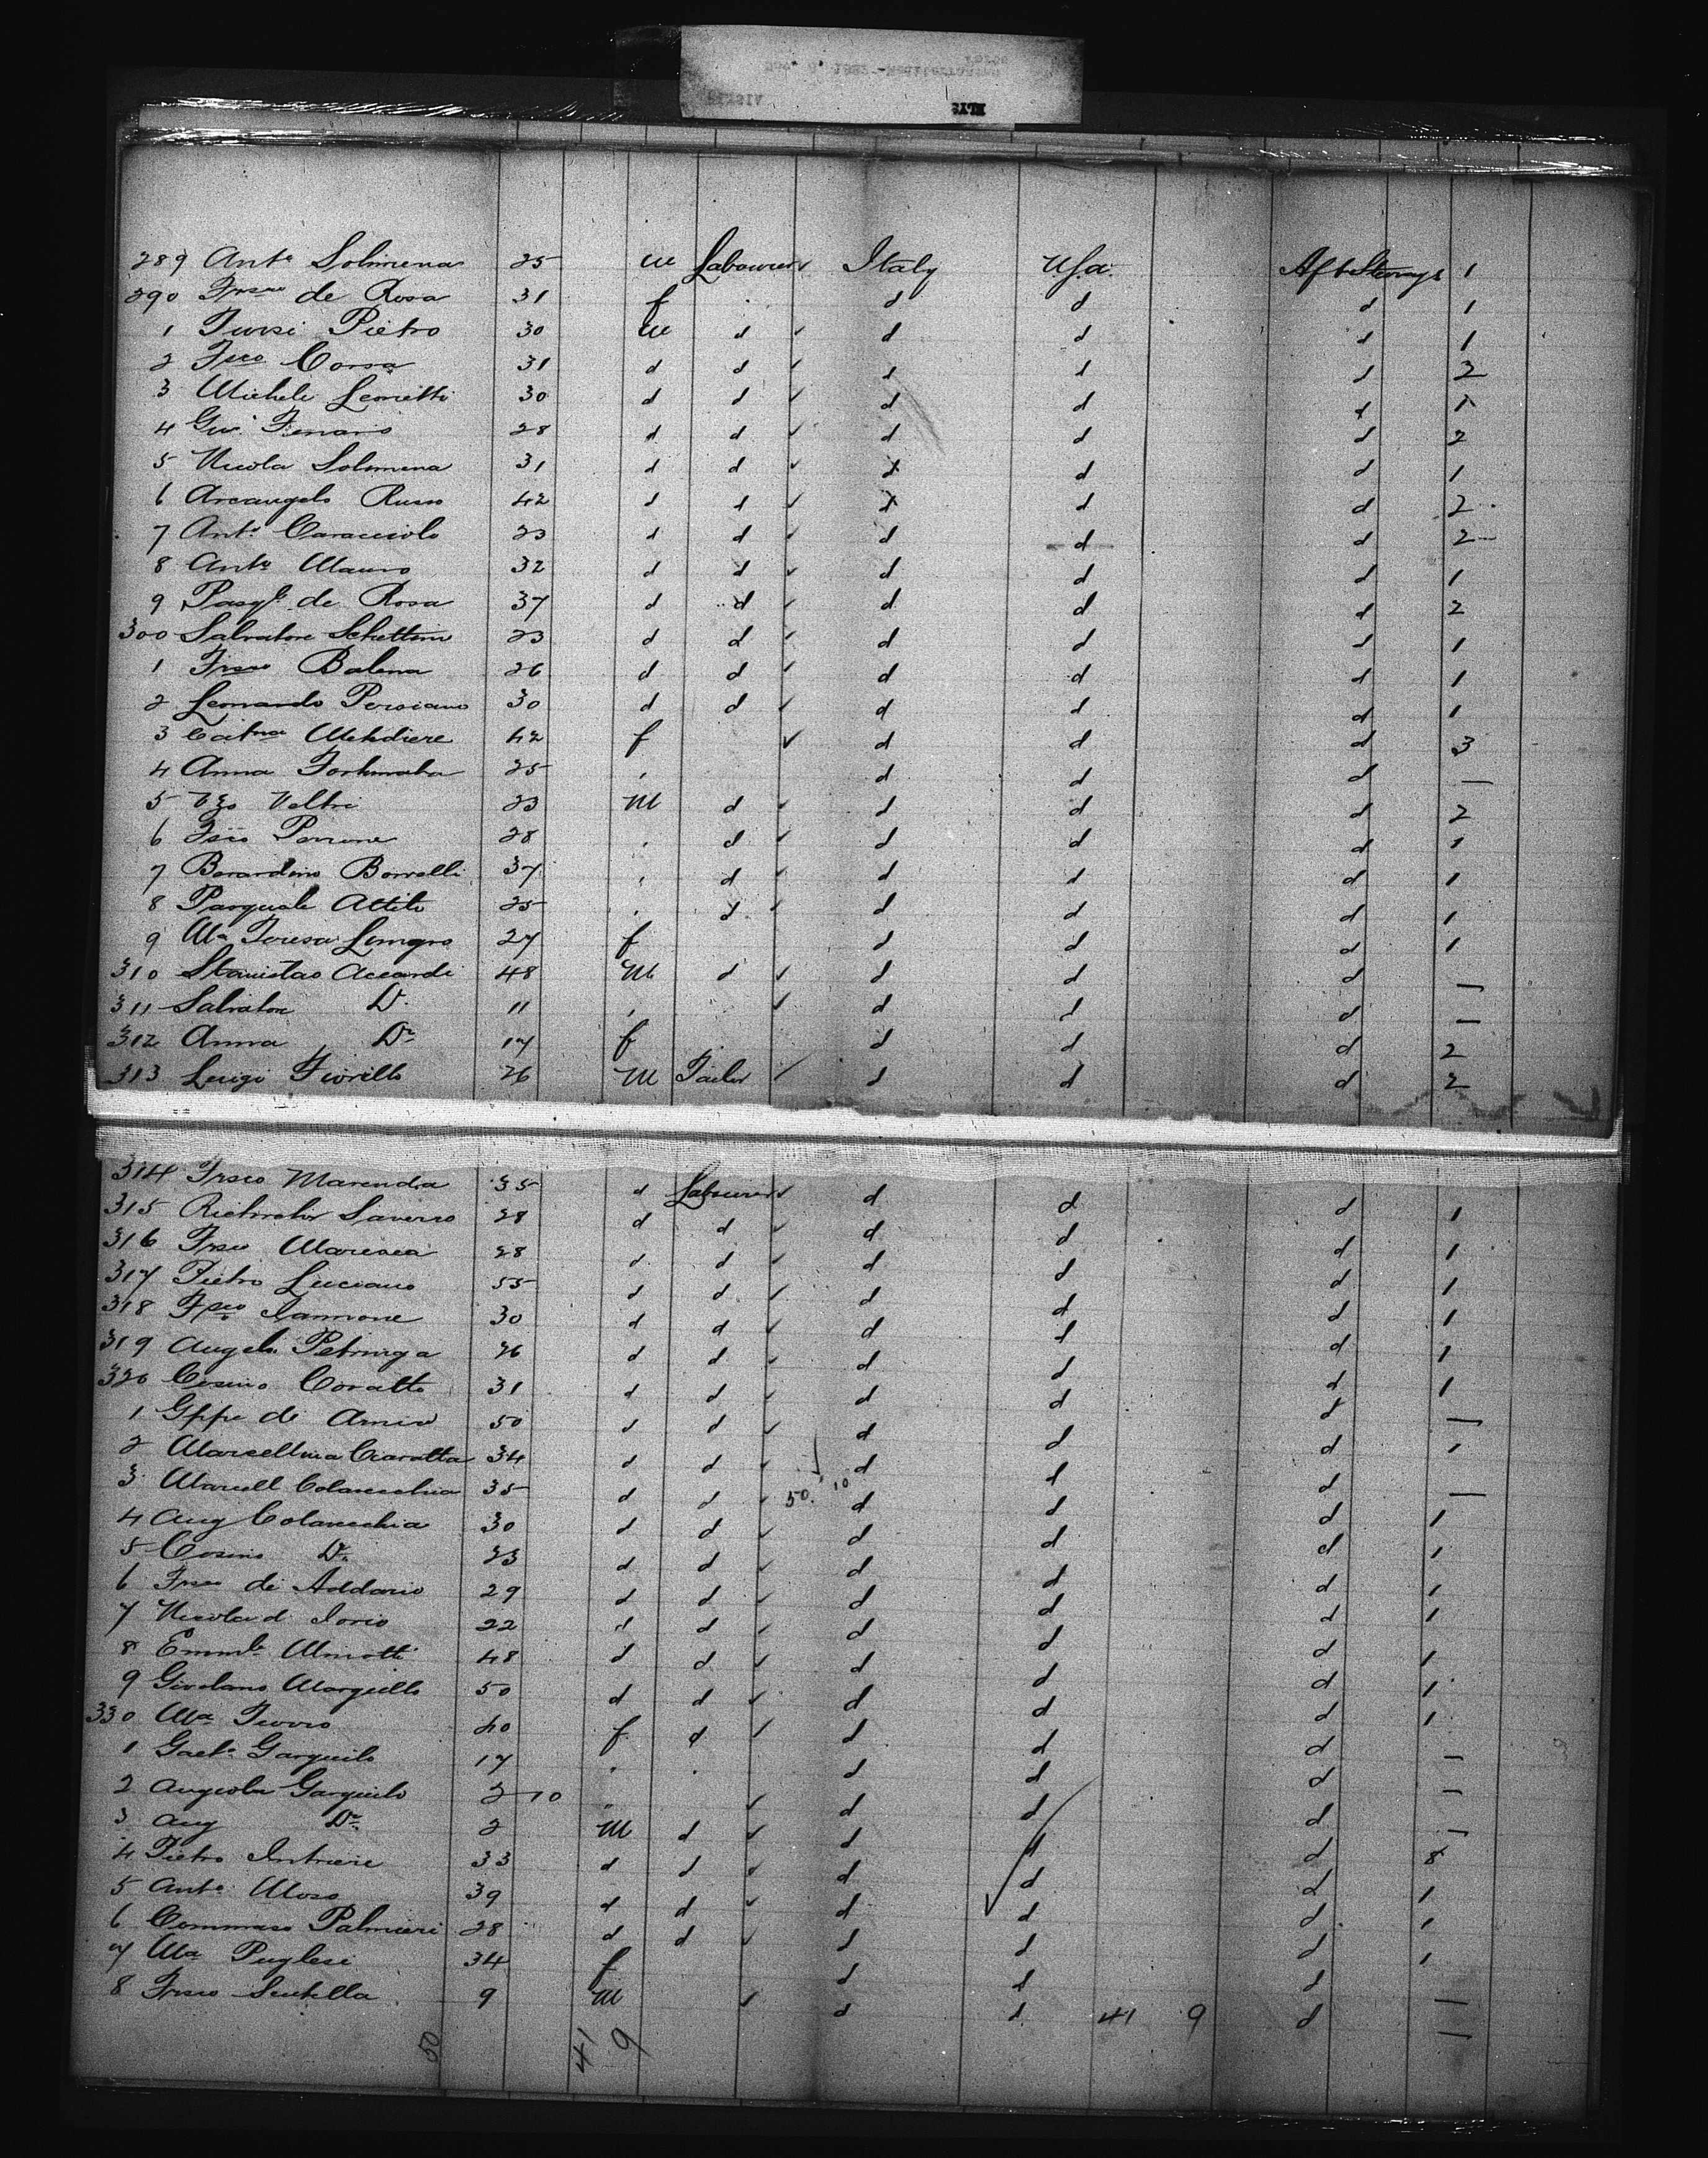 289 Ant° Solimena 25 m Labourer ✓ Italy U.S.a. Aft Steerage 1
290 Frsco de Rosa 31 f d d d 1
1 Tursi Pietro 30 m d ✓ d d d 1
2 Fsco Corsa 31 d d ✓ d d d 2
3 Michele Leonetti 30 d d ✓ d d d 1
4 Giu. Ferraro 28 d d ✓ d d d 2
5 Nicola Solimena 31 d d ✓ d d d 1
6 Arcangelo Russo 42 d d ✓ d d d 2
7 Ant° Caracciolo 23 d d ✓ d d d 2
8 Ant° Mauro 32 d d ✓ d d d 1
9 Pasqle de Rosa 37 d d ✓ d d d 2
300 Salvatore Schettini 23 d d ✓ d d d 1
1 Frsco Balena 26 d d ✓ d d d 1
2 Leonardo Persiano 30 d d ✓ d d d 1
3 Catna 42 f ✓ d d d 3
4 Anna Fortunata 25 d d d —
5 Veltri 23 m d ✓ d d d 2
6 Fsco Perrone 28 d ✓ d d d 1
7 Berardino Borrelli 37 d ✓ d d d 1
8 Pasquale Attile 25 d ✓ d d d 1
9 Ma Teresa 27 f d d d 1
310 Stanislao Accardi 48 m d ✓ d d d —
311 Salvatore Do 11 ✓ d d d —
312 Anna Do 17 f d d d 2
313 Luigi Fiorillo 26 m Tailor ✓ d d d 2
314 Frsco Marenda 35 d Labourer ✓ d d d 1
315 Saverio 28 d d ✓ d d d 1
316 Frsco Maresca 28 d d ✓ d d d 1
317 Pietro Luciano 55 d d ✓ d d d 1
318 Fsco Iannone 30 d d ✓ d d d 1
319 Angelo Petruga 26 d d ✓ d d d 1
320 Cosimo Coratto 31 d d ✓ d d d —
1 Gppe di Amico 50 d d ✓ d d d 1
2 Marcellina Ciaratta 34 d d ✓ d d d —
3 Marcell Colavecchia 35 d d ✓ 50. 10 d d d 1
4 Aug Colavecchia 30 d d ✓ d d d 1
5 Cosimo Do 23 d d ✓ d d d 1
6 Frsco di Addario 29 d d ✓ d d d 1
7 Nicola d Iorio 22 d d ✓ d d d 1
8 Emmle 48 d d ✓ d d d 1
9 Girolamo Margiello 50 d d ✓ d d d 1
330 Ma 40 f d ✓ d d d —
1 Gaet° Garguilo 17 d d d —
2 Angiola Garguilo 2 10 ✓ d d d —
3 Aug Do 2 m d ✓ d d d 8
4 Pietro Intrieri 33 d d ✓ d d d 1
5 Ant° Moso 39 d d ✓ d d d 1
6 Tommaso Palmieri 28 d d ✓ d d d 1
7 Ma Puglesi 34 f d d d —
8 Frsco Scutella 9 m ✓ d d 41 9 d —
50 41 9